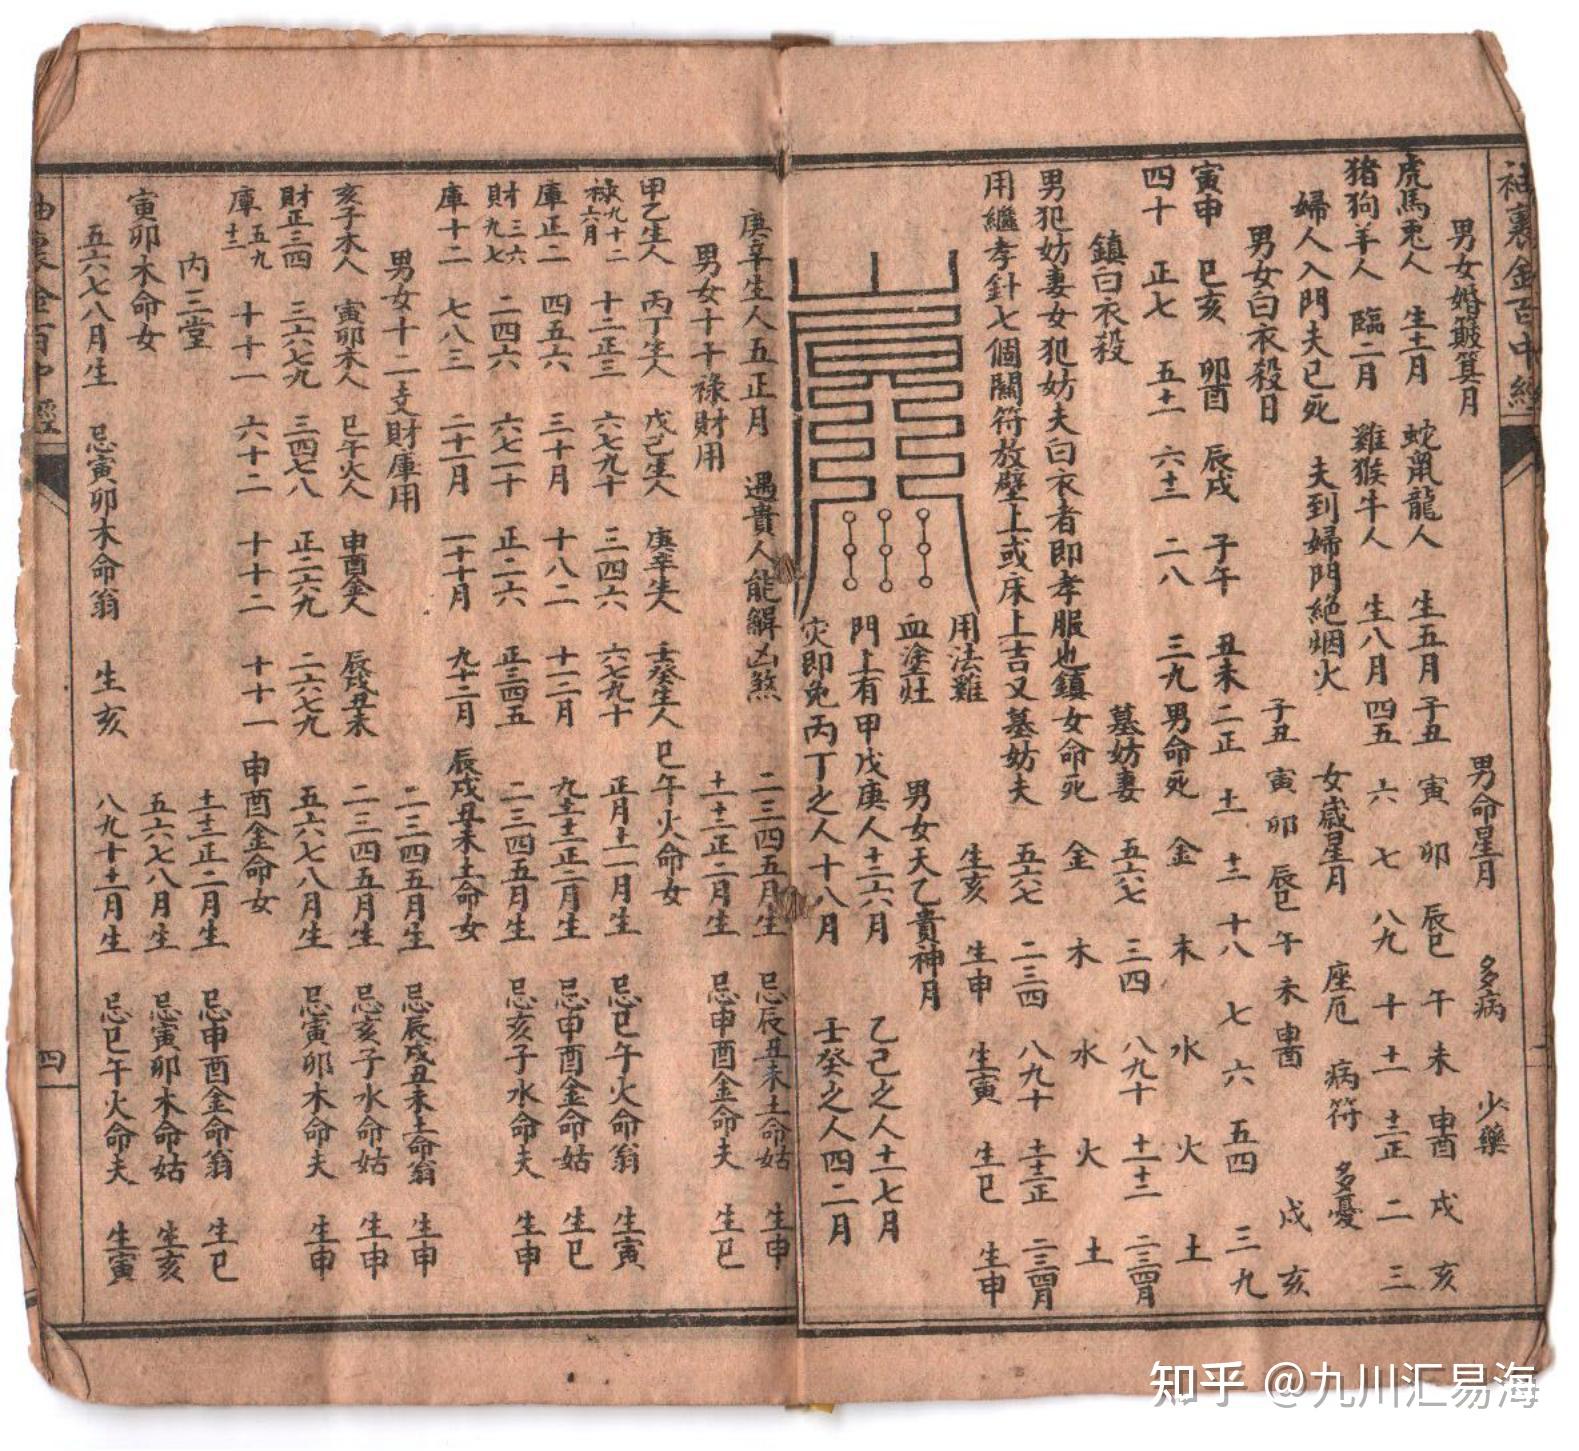 袖裏金百中經
男女婚骰箕月
虎馬兎人 生十二月 蛇鼠龍人 生五月
猪狗羊人 臨二月 雞猴牛人 生八月
婦人入門夫已死 夫到婦門絕烟火
男女白衣殺日
寅申 巳亥 卯酉 辰戌 子午 丑未
四十 正七 五十一 六十二 二八 三九
鎮白衣殺
男犯妨妻女犯妨夫白衣者即孝服也鎮
用繼孝針七個關符放壁上或床上吉又
用法雞
血塗灶
門上有
灾即免
男命星月 多病 少藥
子丑 寅 卯 辰巳 午 未 申酉 戌 亥
四五 六 七 八九 十 十一 十二正 二 三
女歲星月 座厄 病符 多憂
子丑 寅 卯 辰巳 午 未 申酉 戌 亥
二正 十二 十一 十八 七 六 五四 三 九
男命死 金 木 水 火 土
墓妨妻 五六七 三四 八九十 十一十二 二三四月
女命死 金 木 水 火 土
墓妨夫 五六七 二三四 八九十 十一十二正 二三四月
生亥 生申 生寅 生巳 生申
男女天乙貴神月
甲戊庚人十二六月 乙己之人十一七月
丙丁之人十八月 壬癸之人四二月
庚辛生人五正月 遇貴人能解凶煞
男女十干祿財用
甲乙生人 丙丁生人 戊己生人 庚辛生人 壬癸生人
祿九十二六月 十二正三 六七九十 三四六 六七九十
庫正二 四五六 三十月 十八二 十一二月
財三六九七 二四六 六七一十 正二六 正三四五
庫十二 七八三 二十一月 一十十月 九十二月
男女十二支財庫用
亥子水人 寅卯木人 巳午火人 申酉金人 辰戌丑未
財正三四 三六七九 三四七八 正二六九 二六七九
庫五九十二 十十一 六十二 十十二 十十一
内三堂
寅卯木命女
五六七八月生 忌寅卯木命翁 生亥
二三四五月生 忌辰丑未土命姑 生申
十一十二正二月生 忌申酉金命夫 生巳
巳午火命女
正月十一月生 忌巳午火命翁 生寅
九十十一十二正二月生 忌申酉金命姑 生巳
二三四五月生 忌亥子水命夫 生申
辰戌丑未土命女
二三四五月生 忌辰戌丑未土命翁 生申
二三四五月生 忌亥子水命姑 生申
五六七八月生 忌寅卯木命夫 生申
申酉金命女
十一十二正二月生 忌申酉金命翁 生巳
五六七八月生 忌寅卯木命姑 生亥
八九十十一月生 忌巳午火命夫 生寅
四
知乎 @九川汇易海